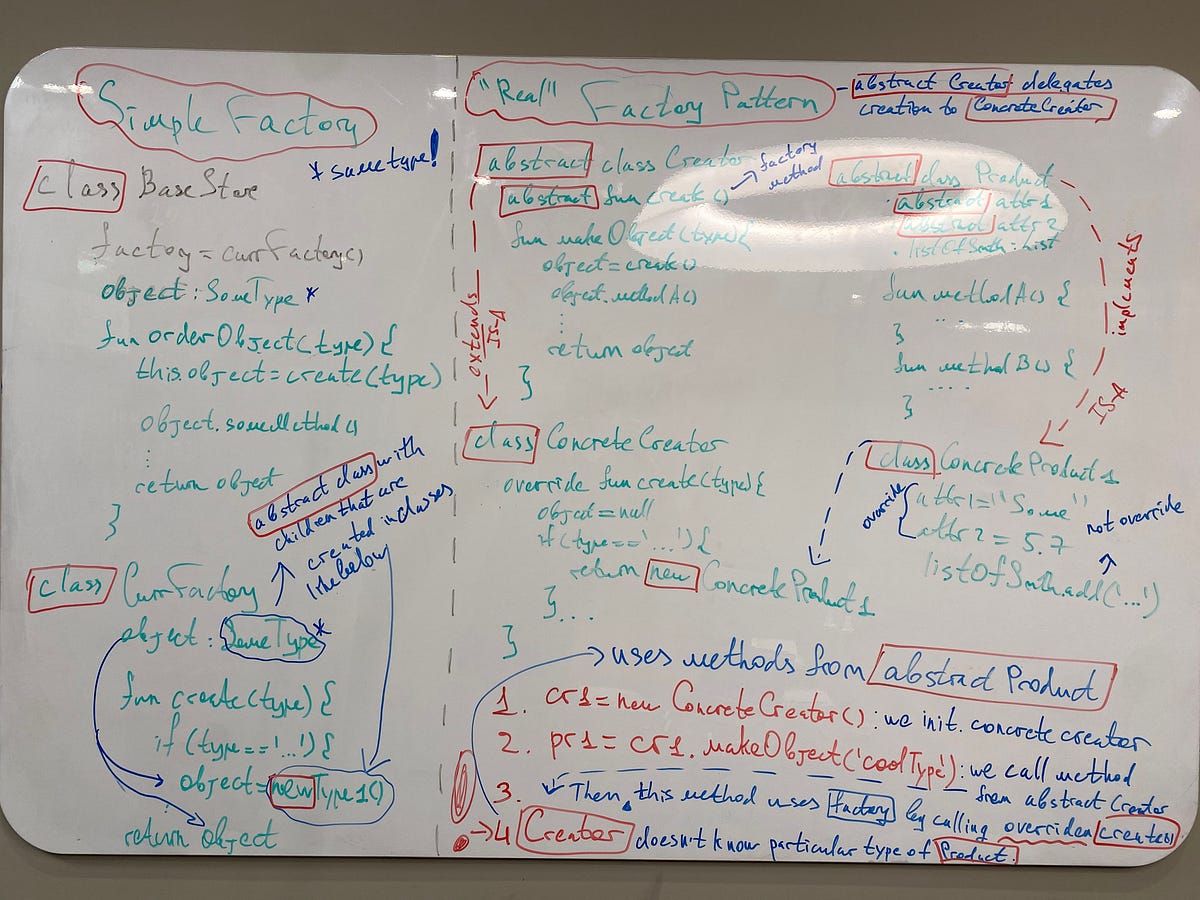 Simple Factory
* same type!
class BaseStore
factory = currFactory()
object : SomeType *
fun orderObject(type) {
this.object = create(type)
object.someMethod()
:
return object
}
abstract class with
children that are
created in classes
like below
class CurrFactory
object : SomeType*
fun create(type) {
if (type=='...') {
object = new Type1()
return object
"Real" Factory Pattern
- abstract Creator delegates
creation to ConcreteCreator
abstract class Creator
abstract fun create()
factory
method
fun makeObject(type) {
object = create()
object.methodA()
:
return object
}
extends
IS-A
abstract class Product
. abstract attr1
abstract attr2
. listOfSmth : list
fun methodA() {
...
}
fun methodB() {
.....
}
implements
IS-A
class ConcreteCreator
override fun create(type) {
object = null
if (type=='...') {
return new ConcreteProduct1
}...
}
class ConcreteProduct1
override
attr1 = "Some"
attr2 = 5.7
not override
listOfSmth.add('...')
uses methods from abstract Product
1. cr1 = new ConcreteCreator() : we init. concrete creator
2. pr1 = cr1.makeObject('coolType') : we call method
from abstract Creator
3. Then, this method uses factory by calling overriden create()
! → 4 Creator doesn't know particular type of Product.